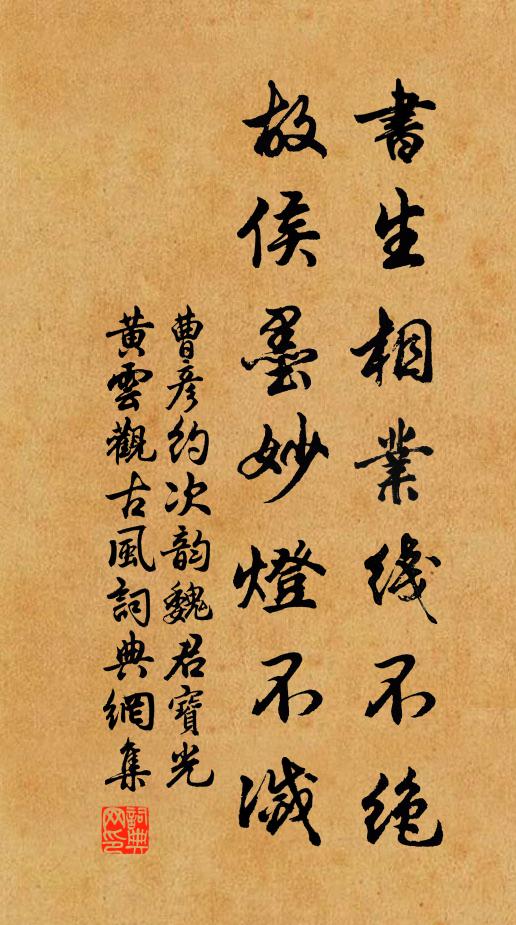 書生相業线不绝
故侯墨妙燈不滅
曹彦約次韵魏君寶光
黄雲觀古風詞典網集
詞典网印